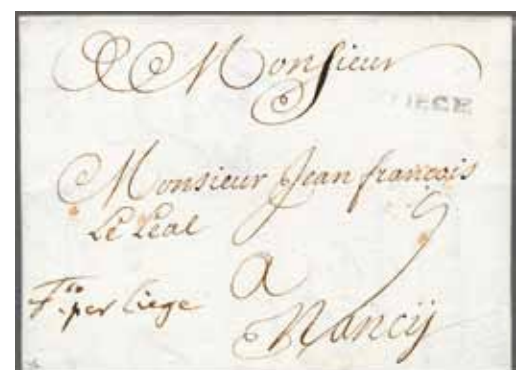 A Monsieur
LIEGE
Monsieur Jean francois
Le Leal
9
a
fco. per Liege
Nancij